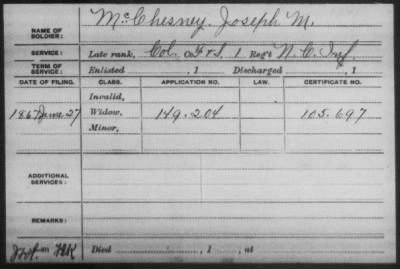 NAME OF SOLDIER: McChesney, Joseph M.
SERVICE: Late rank, Col. F & S, 1 Reg't N. C. Inf.
TERM OF SERVICE: Enlisted , 1 Discharged , 1
DATE OF FILING. CLASS. APPLICATION NO. LAW. CERTIFICATE NO.
Invalid,
1867 June 27 Widow, 149.204 105.697
Minor,
ADDITIONAL SERVICES:
REMARKS:
Died , 1 , at